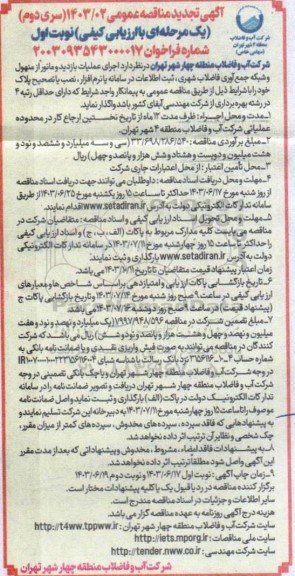 آگهی تجدید مناقصه عمومی ۱۴۰۳/۰۲ (سری دوم)
(یک مرحله‌ای با ارزیابی کیفی) نوبت اول
شماره فراخوان ۲۰۰۳۰۹۳۵۴۳۰۰۰۰۱۷
شرکت آب و فاضلاب
منطقه ۴ شهر تهران
(سهامی خاص)
شرکت آب و فاضلاب منطقه چهار شهر تهران در نظر دارد اجرای عملیات بازدید و مانور از منهول
و شبکه جمع آوری فاضلاب شهری، ثبت اطلاعات در سامانه یا نرم افزار، نصب یا تصحیح پلاک
خود را با شرایط ذیل از طریق مناقصه عمومی به پیمانکار واجد شرایط که دارای حداقل رتبه ۴
در رشته بهره برداری از شرکت مهندسی آبفای کشور باشد واگذار نماید.
۱ـ مدت و محل اجراء: ظرف مدت ۱۲ ماه از تاریخ نخستین ارجاع کار در محدوده
عملیاتی شرکت آب و فاضلاب منطقه ۴ شهر تهران.
۲ـ مبلغ برآوردی مناقصه: ۳۳/۶۹۸/۲۸۶/۵۴۰ (سی و سه میلیارد و ششصد و نود و
هشت میلیون و دویست و هشتاد و شش هزار و پانصد و چهل) ریال
۳ـ محل تأمین اعتبار: از محل اعتبارات جاری شرکت
۴ـ مهلت و محل دریافت اسناد مناقصه: داوطلبان می توانند جهت دریافت اسناد مناقصه
از روز شنبه مورخ ۱۴۰۳/۰۶/۱۷ حداکثر تا ساعت ۱۵ روز یکشنبه مورخ ۱۴۰۳/۰۶/۲۵ از طریق
سامانه تدارکات الکترونیکی دولت به آدرس www.setadiran.ir اقدام نمایند.
۵ـ مهلت و محل تحویل اسناد ارزیابی کیفی و اسناد مناقصه: متقاضیان شرکت در
مناقصه می بایست کلیه مدارک مربوط به پاکات (الف، ب، ج) و اسناد ارزیابی کیفی
را حداکثر تا ساعت ۱۵ روز چهارشنبه مورخ ۱۴۰۳/۰۷/۱۱ در سامانه تدارکات الکترونیکی
دولت به آدرس www.setadiran.ir بارگذاری نمایند.
زمان اعتبار پیشنهاد قیمت متقاضیان تا تاریخ می باشد.
۶ـ تاریخ بازگشایی پاکات: ارزیابی و امتیازدهی براساس شاخص ها و معیارهای
ارزیابی کیفی در ساعت ۹ صبح روز شنبه مورخ ۱۴۰۳/۰۷/۱۴ و تاریخ بازگشایی پاکات ج
(پیشنهاد قیمت) در ساعت ۹ صبح روز دوشنبه می باشد.
۷ـ مبلغ تضمین شرکت در مناقصه ۱/۹۹۷/۹۴۸/۵۹۶ (یک میلیارد و نهصد و نود و هفت
میلیون و نهصد و چهل و هشت هزار و پانصد و نود و شش) ریال می باشد که شرکت
کنندگان در مناقصه می توانند به صورت فیش واریزی نقدی و یا ضمانت نامه بانکی به
حساب نزد بانک رسالت با شناسه شبای
در وجه شرکت آب و فاضلاب منطقه چهار شهر تهران و یا چک بانکی تضمینی در وجه
شرکت آب و فاضلاب منطقه چهار شهر تهران دریافت و تصویر ضمانت نامه را در سامانه
تدارکات الکترونیک دولت در پاکت (الف) بارگذاری و ثبت نماید و اصل ضمانت نامه
موصوف را تا ساعت ۱۵ روز چهارشنبه مورخ ۱۴۰۳/۰۷/۱۱ به دبیرخانه این شرکت تسلیم نمایند و
به پیشنهادهایی که فاقد سپرده، سپرده های مخدوش، سپرده های کمتر از میزان مقرر،
چک شخصی و نظایر آن ترتیب اثر داده نخواهد شد.
۸ـ به پیشنهادات فاقد امضاء، مشروط، مخدوش و پیشنهاداتی که بعد از مدت مقرر
این آگهی واصل شود مطلقاً ترتیب اثر داده نخواهد شد.
۹ـ زمان چاپ آگهی: نوبت اول ۱۴۰۳/۰۶/۱۷ و نوبت دوم ۱۴۰۳/۰۶/۱۹
برگزار کننده مناقصه در رد یا قبول یک یا کلیه پیشنهادات مختار است.
سایر اطلاعات و جزئیات در اسناد مناقصه مندرج است.
هزینه درج آگهی روزنامه به عهده برنده مناقصه می باشد.
سایت شرکت آب و فاضلاب منطقه چهار شهر تهران: http://t4ww.tppww.ir
سایت ملی مناقصات: http://iets.mporg.ir
سایت شرکت مهندسی: http://tender.nww.co.ir
شرکت آب و فاضلاب منطقه چهار شهر تهران